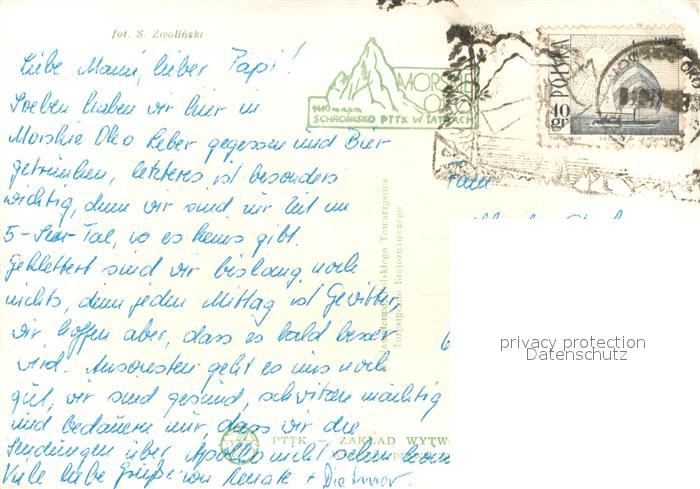 fot. S. Zwoliński
Liebe Mami, lieber Papi!
Soeben haben wir hier im
Morskie Oko Leber gegessen und Bier
getrunken, letzteres ist besonders
wichtig, denn wir sind zur Zeit im
5-See-Tal, wo es keins gibt.
Geklettert sind wir bislang noch
nichts, denn jeden Mittag ist Gewitter,
wir hoffen aber, dass es bald besser
wird. Ansonsten geht es uns noch
gut, wir sind gesund, schwitzen mächtig
und bedauern nur, dass wir die
Sendungen über Apollo nicht sehen
Viele liebe Grüße von Renate + Dietmar.
MORSKIE
OKO
1410 m n.p.m.
SCHRONISKO PTTK W TATRACH
POLSKA
40 gr
Fam
Polskiego Towarzystwa
Turystyczno Krajoznawczego
PTTK — ZAKŁAD WYTW
privacy protection
Datenschutz